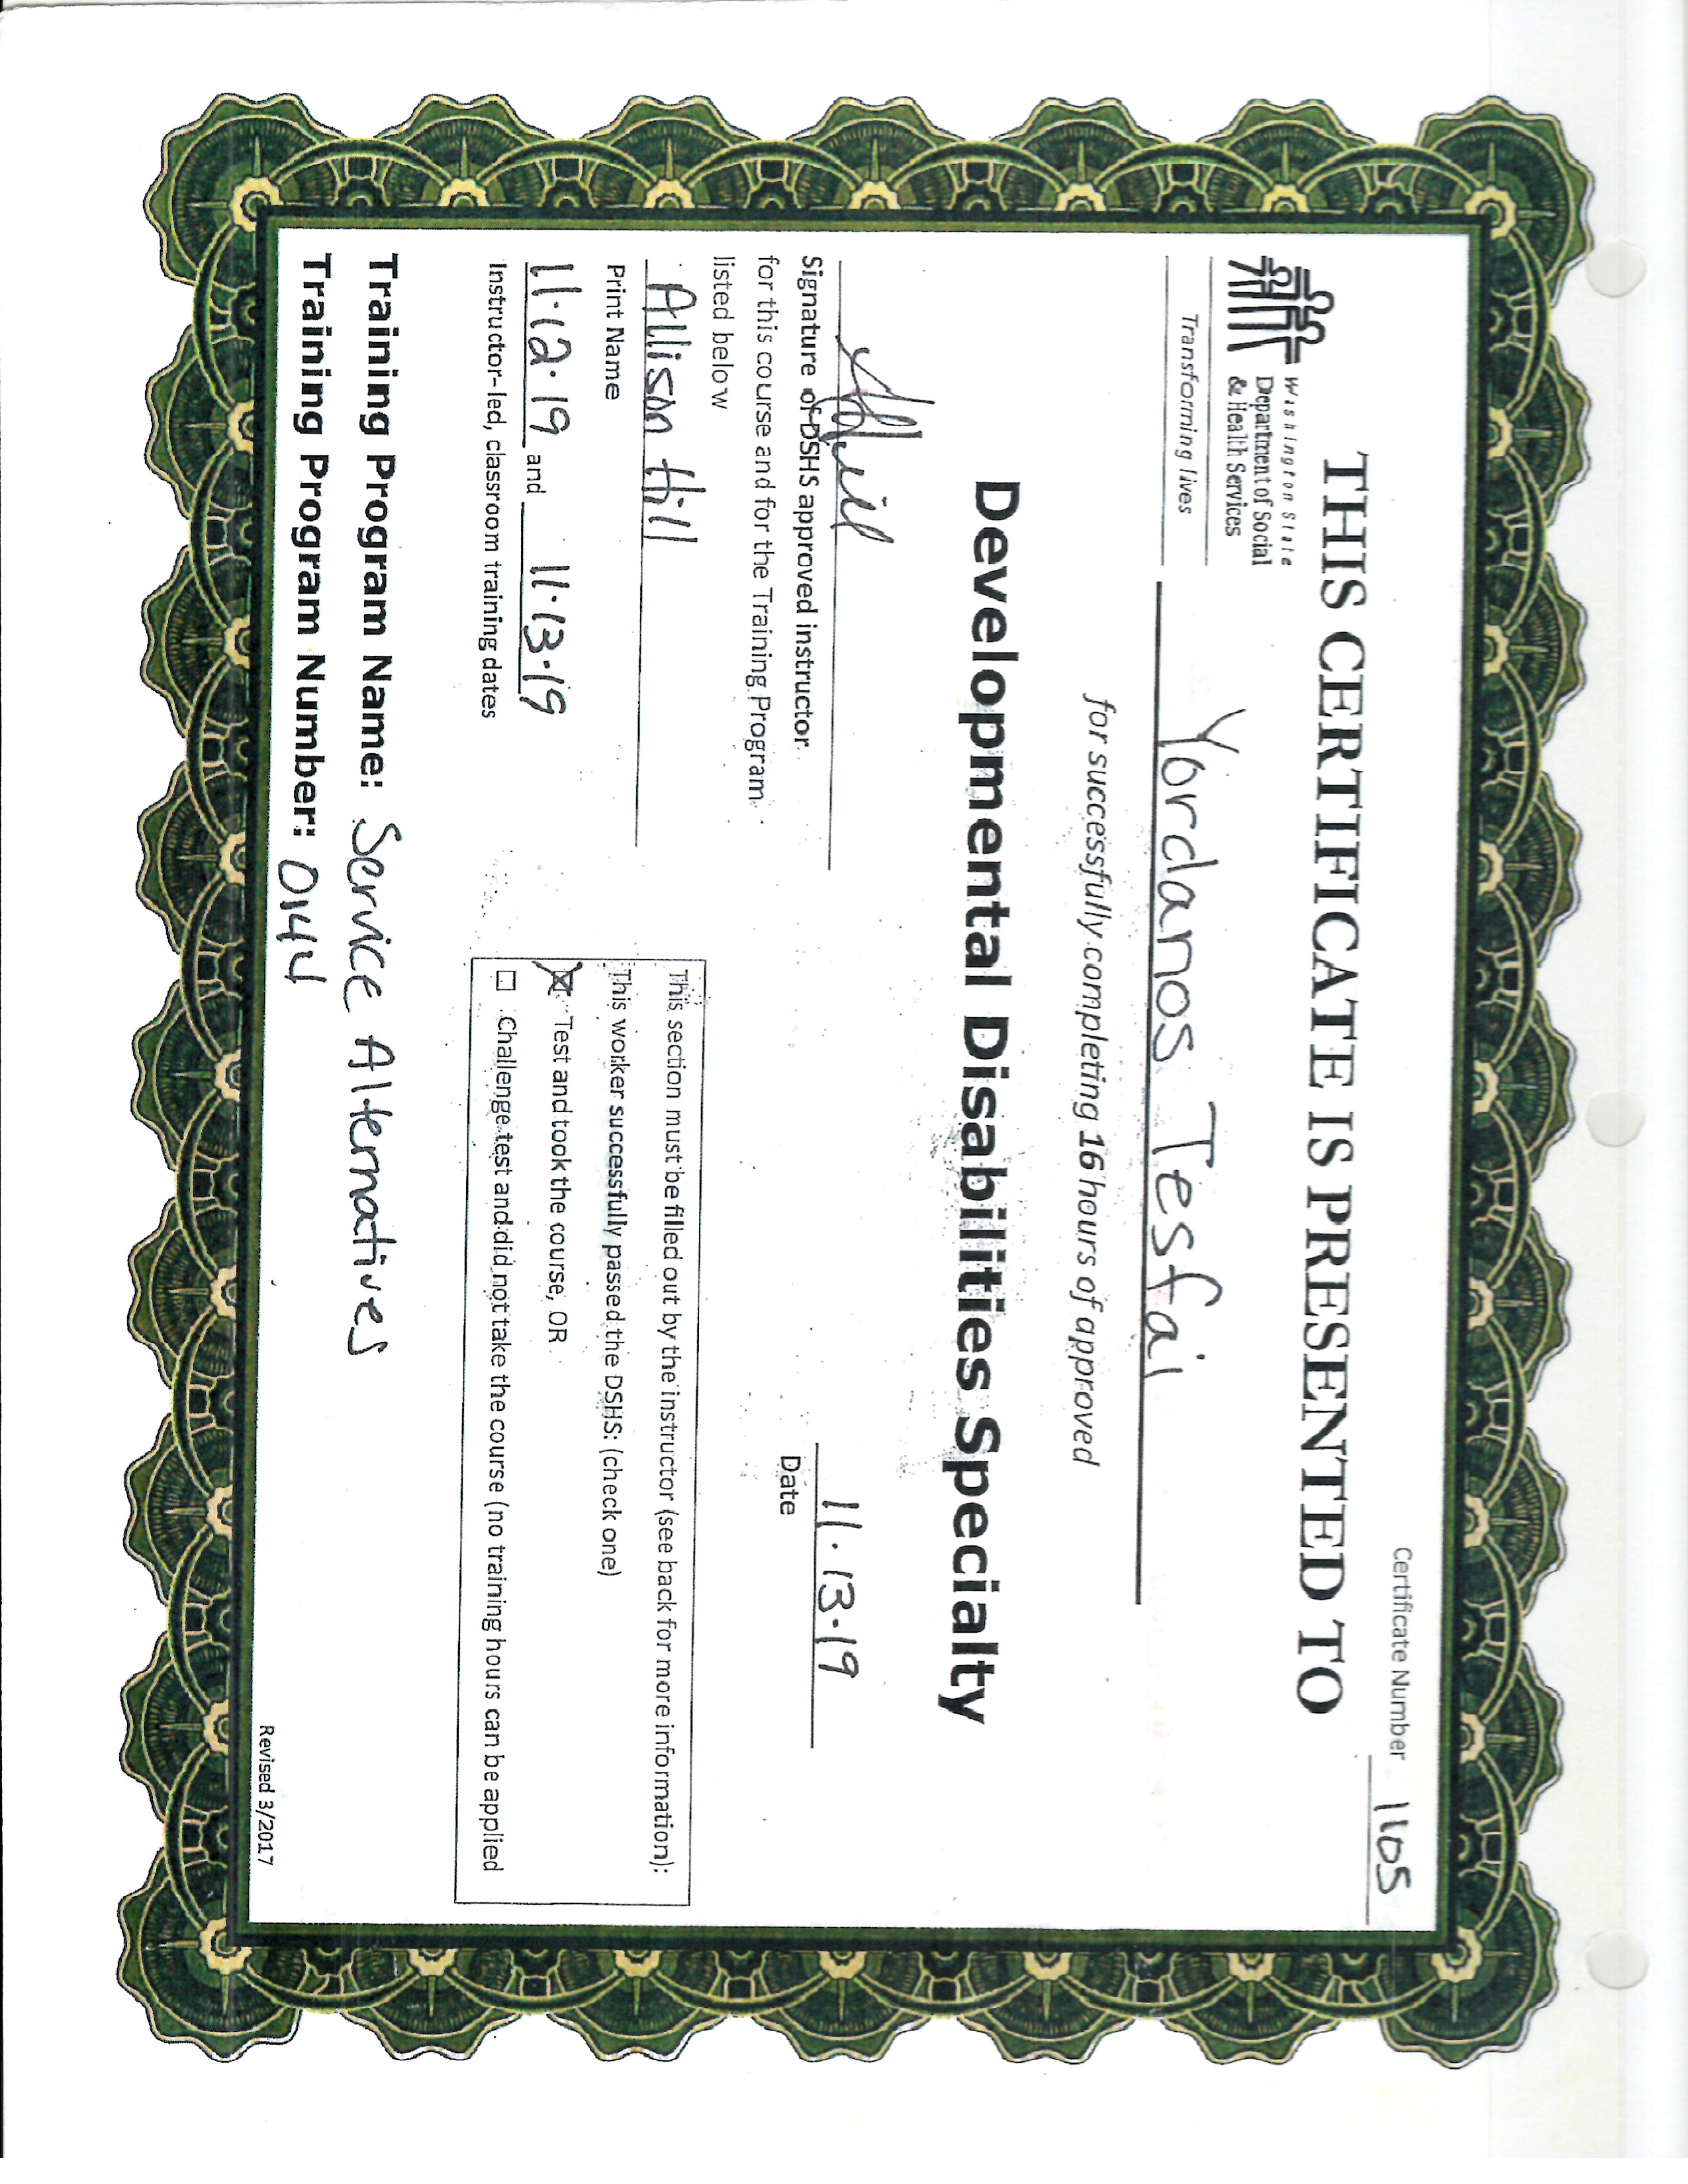 Certificate Number 1105
THIS CERTIFICATE IS PRESENTED TO
Washington State
Department of Social
& Health Services
Transforming lives
Yordanos Tesfai
for successfully completing 16 hours of approved
Developmental Disabilities Specialty
11.13.19
Signature of DSHS approved instructor
Date
for this course and for the Training Program
listed below
Alison Hill
Print Name
11.12.19 and 11.13.19
Instructor-led, classroom training dates
This section must be filled out by the instructor (see back for more information):
This worker successfully passed the DSHS: (check one)
☒ Test and took the course, OR
☐ Challenge test and did not take the course (no training hours can be applied
Training Program Name: Service Alternatives
Training Program Number: 0144
Revised 3/2017